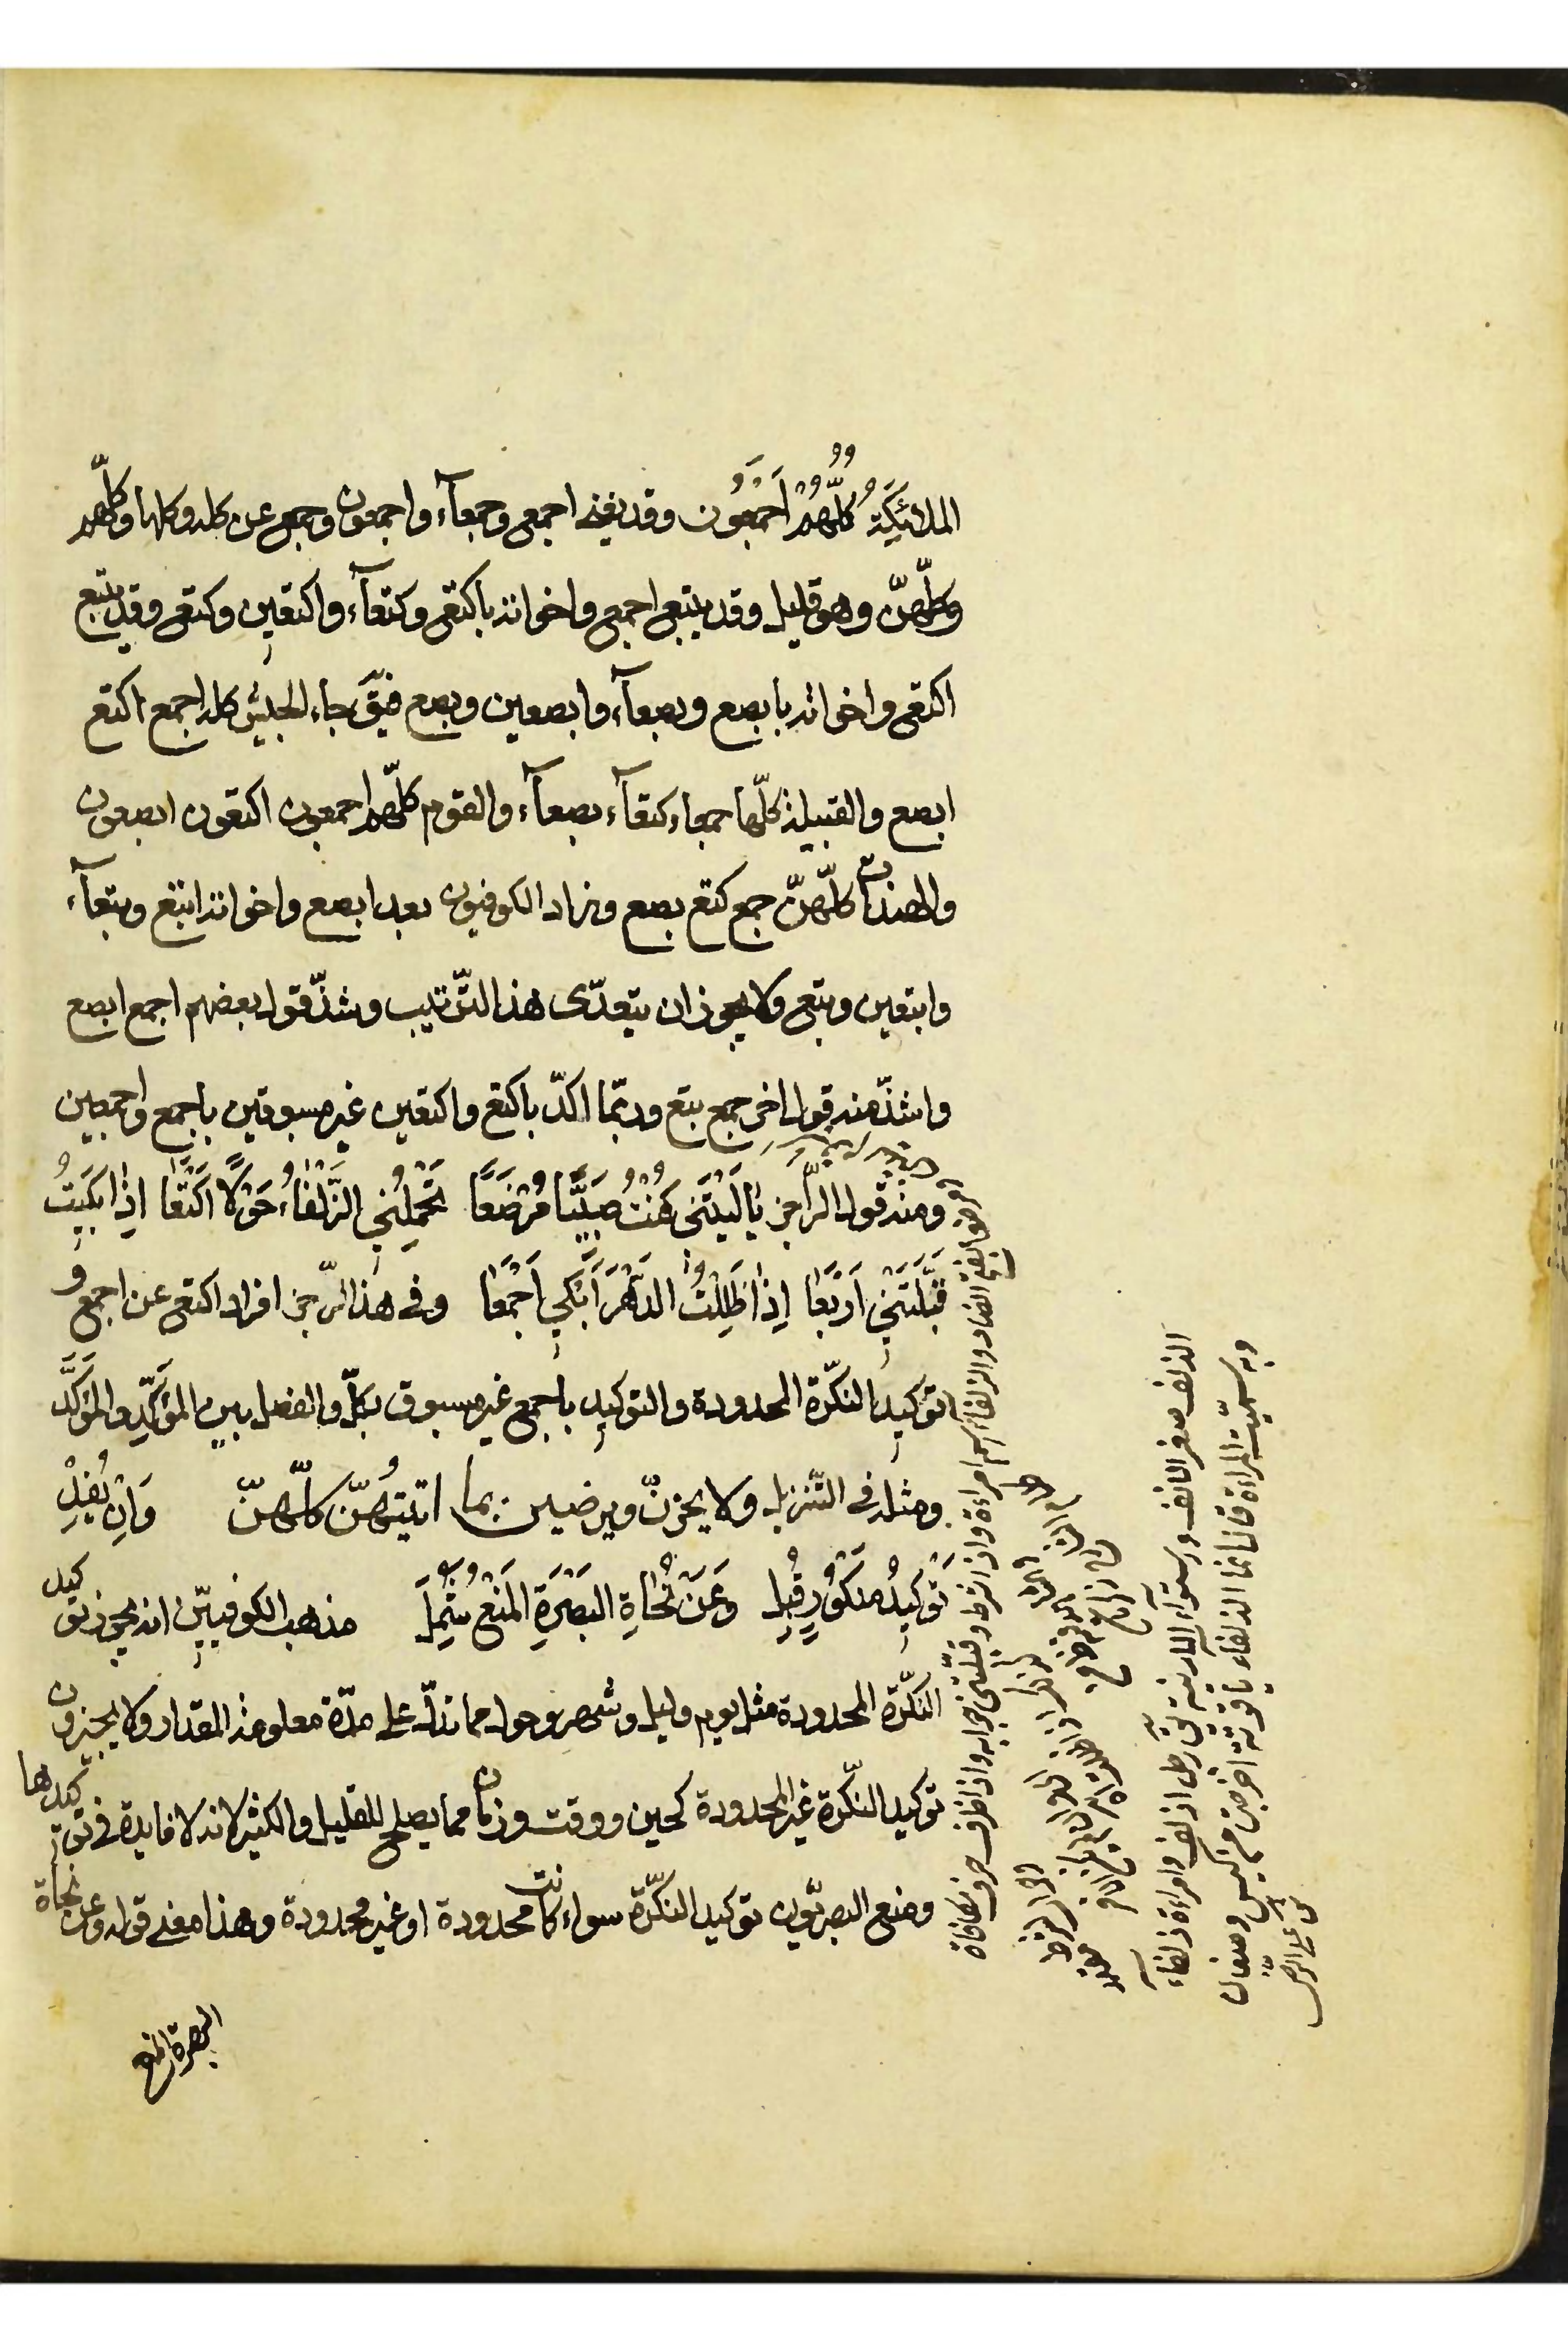 الملئكة كُلُّهُمْ اَجْمَعُون وقد يغنى اجمع وجمعآء واجمعون وجمع عن كله وكلها وكلّهم
وكلّهنّ وهو قليل وقد يتبع اجمع واخواته باكتع وكتعآء واكتعين وكتع وقد يتبع
اكتع واخواته بابصع وبصعآء وابصعين وبصع فيقَ جاء الجيش كله اجمع اكتع
ابصع والقبيلة كلّها جمعاء كتعآء بصعآء والقوم كلّهم اجمعون اكتعون ابصعون
والهندات كلّهنّ جمع كتع بصع وزاد الكوفيون بعد ابصع واخواته ابتع وبتعآء
وابتعين وبتع ولا يجوز ان يتعدّى هذا التّرتيب وشذّ قول بعضهم اجمع ابصع
واشذّ منه قول اخر جمع بتع وربّما اكدّ باكتع واكتعين غير مسبوقين باجمع واجمعين
ومنه قول الرّاجز يٰا لَيْتَنى كُنْتُ صَبِيًّا مُرْضَعًا تَحْمِلُنِي الذَّلْفٰاءُ حَوْلًا اَكْتَعٰا اِذٰا بَكَيْتُ
قَبَّلَتْنِي اَرْبَعٰا اِذٰا ظَلِلْتُ الدَّهْرَ اَبْكِي اَجْمَعٰا وفى هذا الرّجز افراد اكتع عن اجمع و
توكيد النكّرة المحدودة والتوكيد باجمع غير مسبوق بكلّ والفصل بين المؤكِّد والمؤكَّد
ومثله فى التّنزيل ولا يحزنّ ويرضين بما اتيتهُنّ كلّهنّ وَاِنْ يُفِدْ
تَوْكِيدُ مَنْكُورٍ قُبِل وَعَنْ نُحٰاةِ البَصْرَةِ المَنْعُ شُمِلَ مذهب الكوفيّين انه يجوز توكيد
النكّرة المحدودة مثل يوم وليل وشهر وحول مما تدلّ على مدّة معلومة المقدار ولا يجيزون
توكيد النّكرة غير المحدودة كحين ووقت وزمان مما يصلح للقليل والكثير لانه لا فايدة فى توكيدها
ومنع البصريّون توكيد النكّرة سواء كانت محدودة او غير محدودة وهذا معنى قوله وعن نحاة
البصرة المنع
الذلف صغر الانف واستوآء الارنبة يقَ رجل اذلف وامراة ذلفآء
وبه سميّت المراة قال انما الذلفاء ياقوتة اخرجت من كيس دهقان